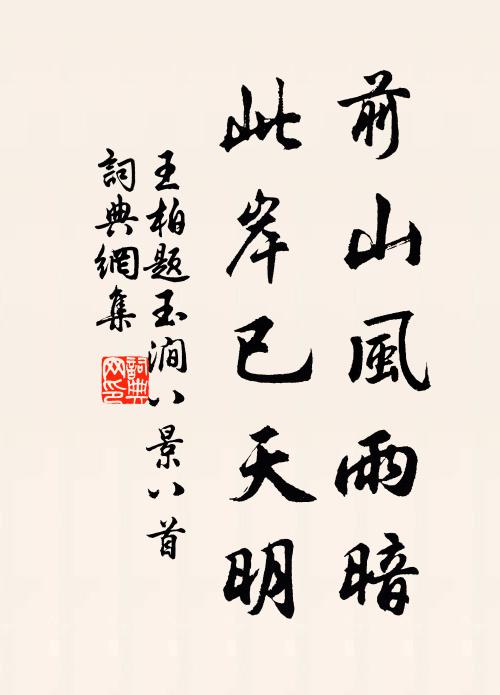 前山風雨暗
此岸已天明
王柏題玉澗八景八首
詞典網集
詞典
网印